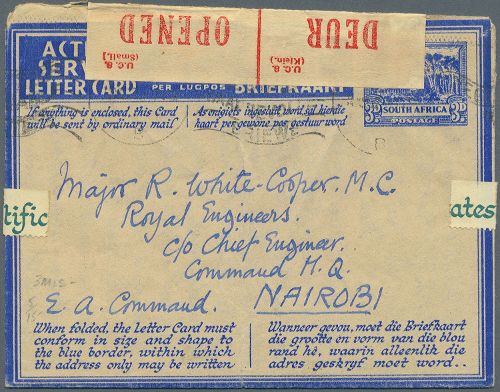 OPENED DEUR
U.C. & (Small.) U.C. & (Klein.)
ACTIVE
SERVICE
LETTER CARD PER LUGPOS BRIEFKAART
If anything is enclosed, this Card
will be sent by ordinary mail
As enigiets ingesluit word, sal hierdie
kaart per gewone pos gestuur word
3D SOUTH AFRICA 3D
POSTAGE
tific
ates
Major R. White-Cooper, M.C.
Royal Engineers.
c/o Chief Engineer.
Command H.Q.
E. A. Command. NAIROBI
When folded, the Letter Card must
conform in size and shape to
the blue border, within which
the address only may be written
Wanneer gevou, moet die Briefkaart
die grootte en vorm van die blou
rand hê, waarin alleenlik die
adres geskryf moet word..